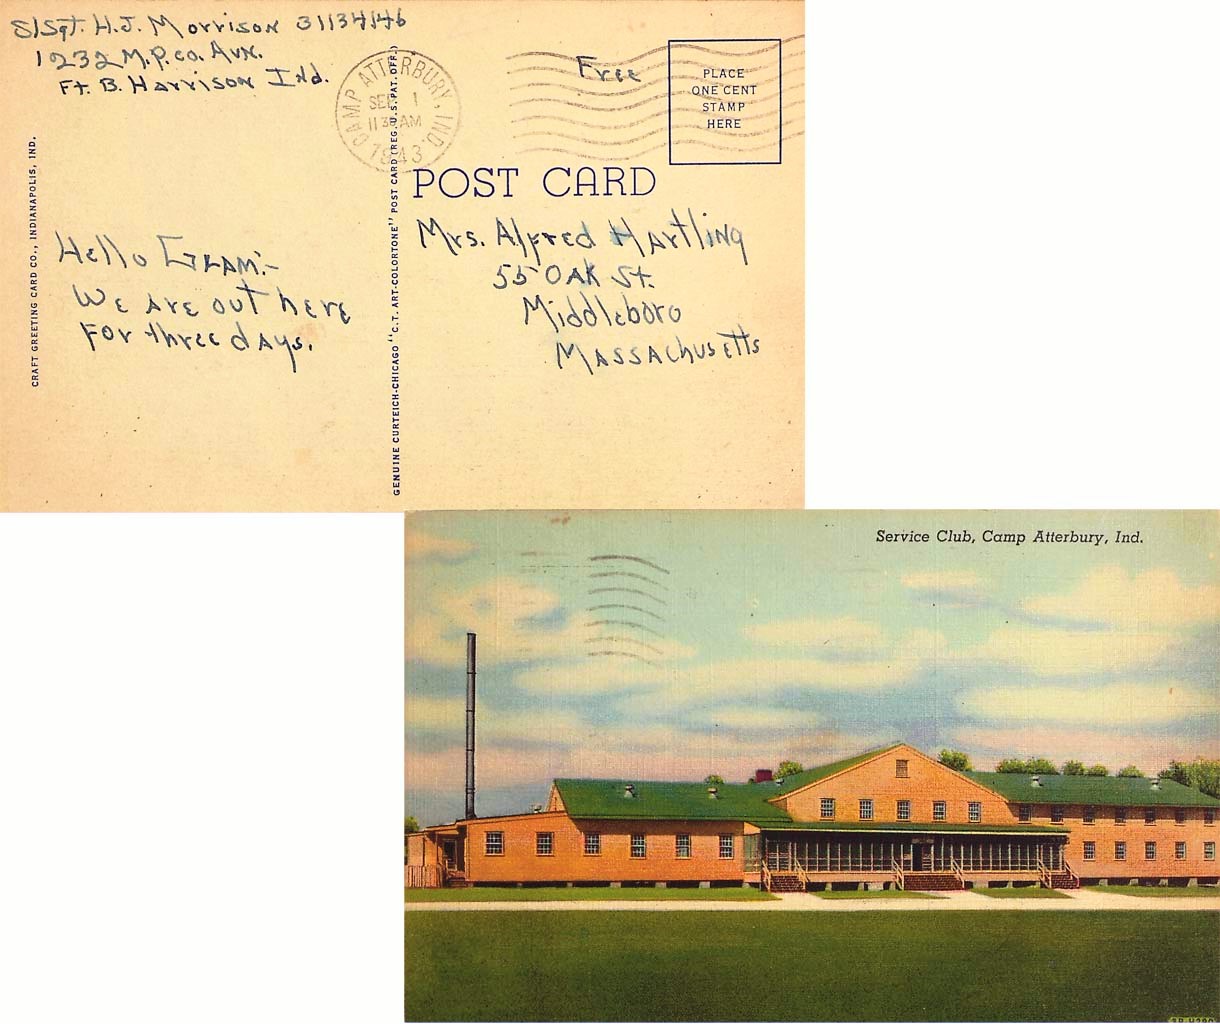 S/Sgt. H.J. Morrison 31134146
1232 M.P. Co. Avn.
Ft. B. Harrison Ind.
CAMP ATTERBURY, IND.
SEP 1
11 30 AM
1943
Free
PLACE
ONE CENT
STAMP
HERE
POST CARD
CRAFT GREETING CARD CO., INDIANAPOLIS, IND.
Hello Gram:-
We are out here
For three days.
GENUINE CURTEICH-CHICAGO "C.T. ART-COLORTONE" POST CARD (REG. U.S. PAT. OFF.)
Mrs. Alfred Hartling
55 Oak St.
Middleboro
Massachusetts
Service Club, Camp Atterbury, Ind.